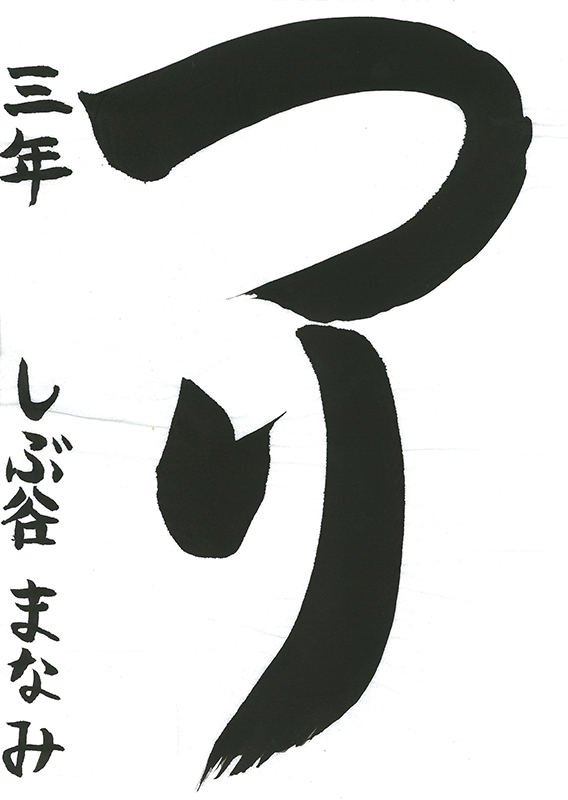 つり
三年 しぶ谷 まなみ